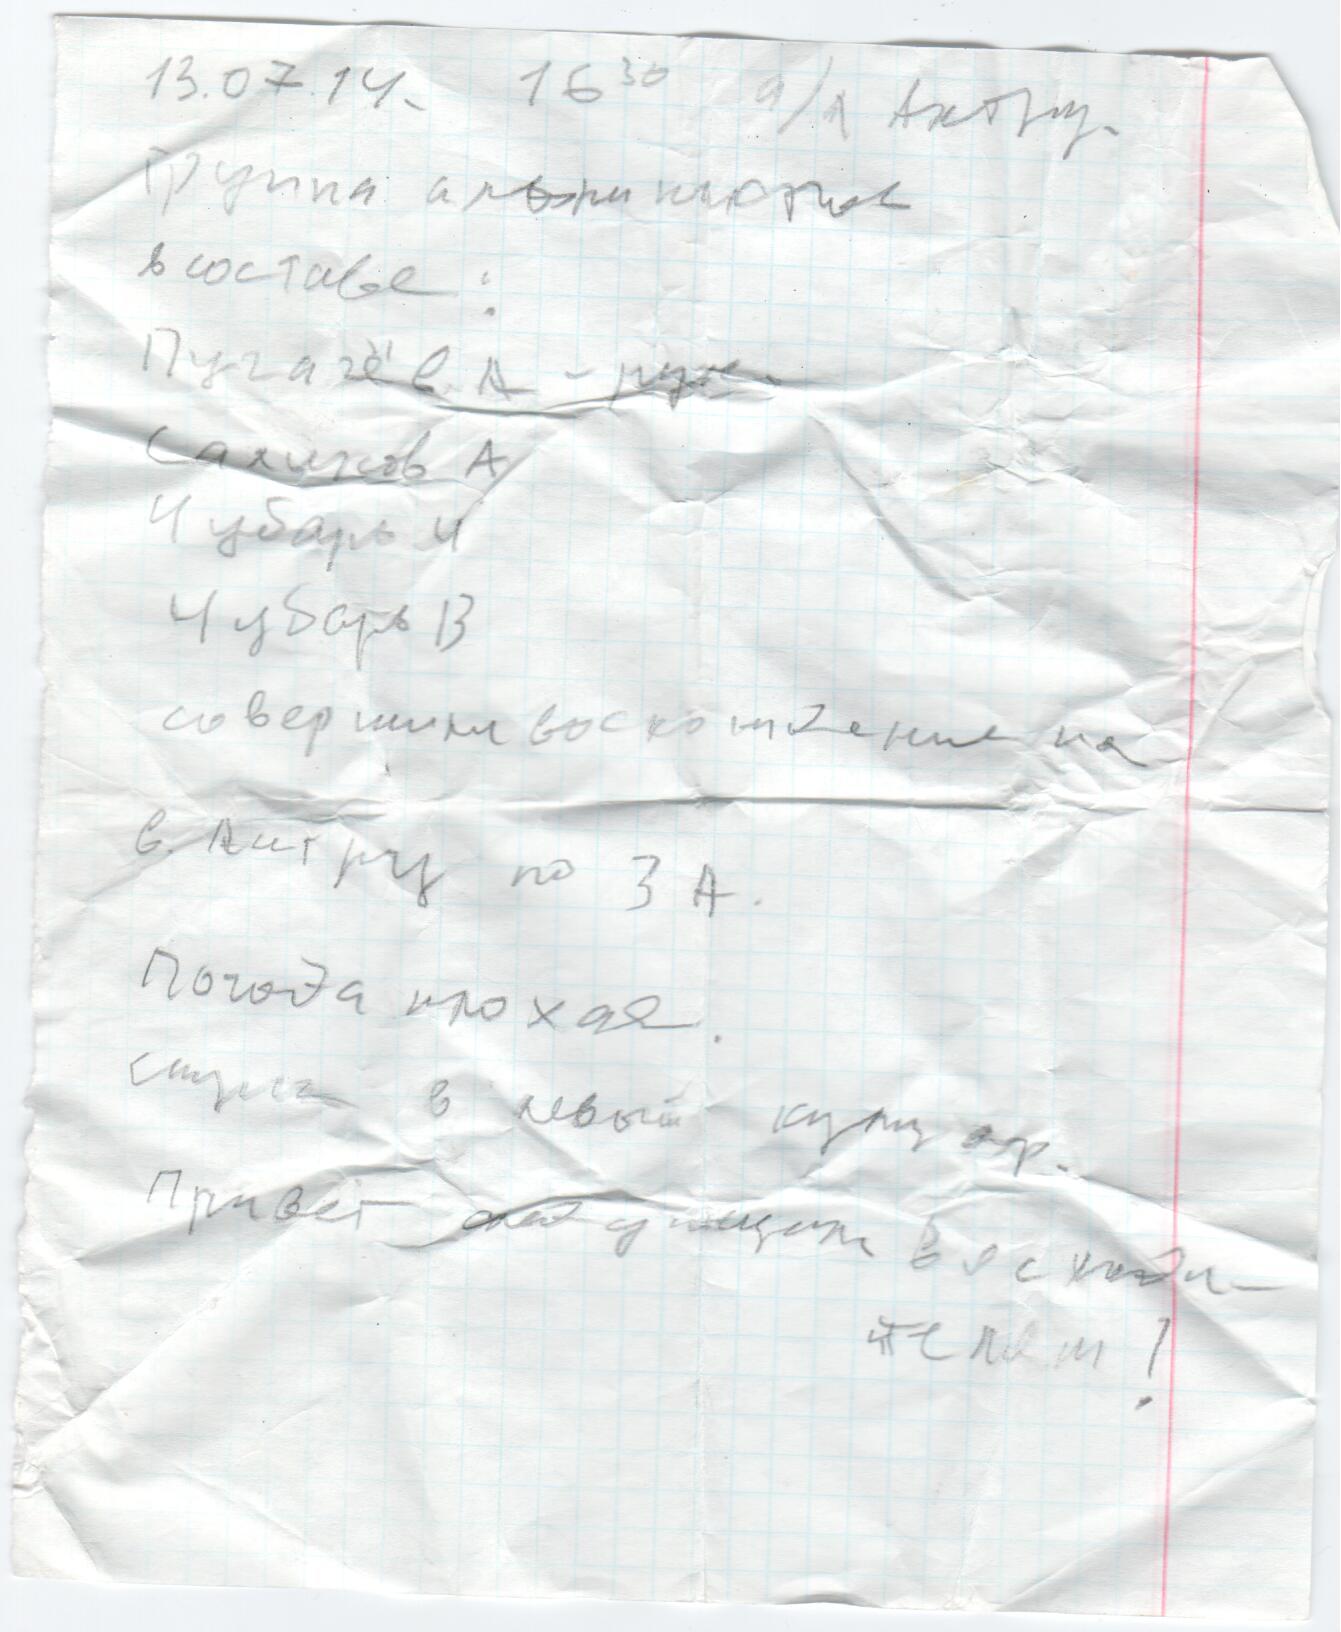 13.07.14. 16³⁰ а/л Актру.
Группа альпинистов
в составе:
Пугачёв А - рук.
Салихов А
Чубарь И
Чубарь В
совершили восхождение на
в. Актру по 3 А.
Погода плохая.
Спуск в левый кулуар.
Привет следующим восходи-
телям!